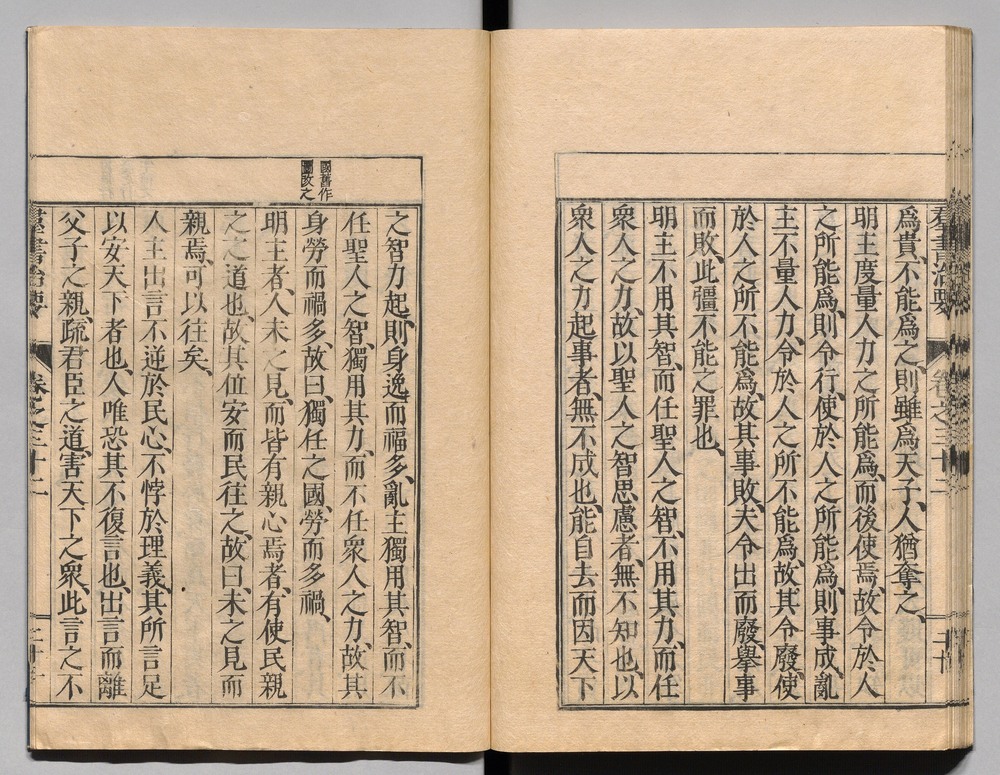 爲貴、不能爲之、則雖爲天子、人猶奪之、
明主度量人力之所能爲、而後使焉、故令於人
之所能爲、則令行、使於人之所能爲、則事成、亂
主不量人力、令於人之所不能爲、故其令廢、使
於人之所不能爲、故其事敗、夫令出而廢、擧事
而敗、此彊不能之罪也、
明主不用其智、而任聖人之智、不用其力、而任
衆人之力、故以聖人之智思慮者、無不知也、以
衆人之力起事者、無不成也、能自去而因天下
國舊作
圖改之
之智力起、則身逸而福多、亂主獨用其智、而不
任聖人之智、獨用其力、而不任衆人之力、故其
身勞而禍多、故曰、獨任之國、勞而多禍、
明主者、人未之見、而皆有親心焉者、有使民親
之之道也、故其位安而民往之、故曰、未之見而
親焉、可以往矣、
人主出言不逆於民心、不悖於理義、其所言足
以安天下者也、人唯恐其不復言也、出言而離
父子之親、疏君臣之道、害天下之衆、此言之不
羣書治要
卷之三十二